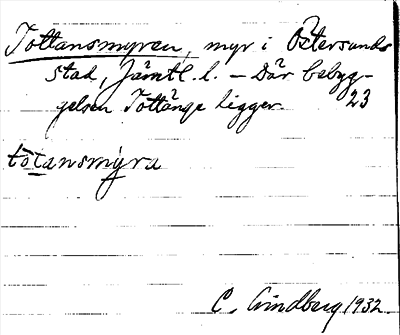 Tottansmyren, myr i Östersunds
stad, Jämtl. l. – Där bebyg-
gelsen Tottänge ligger. 23
tòtansmýra
C. Lindberg 1932.